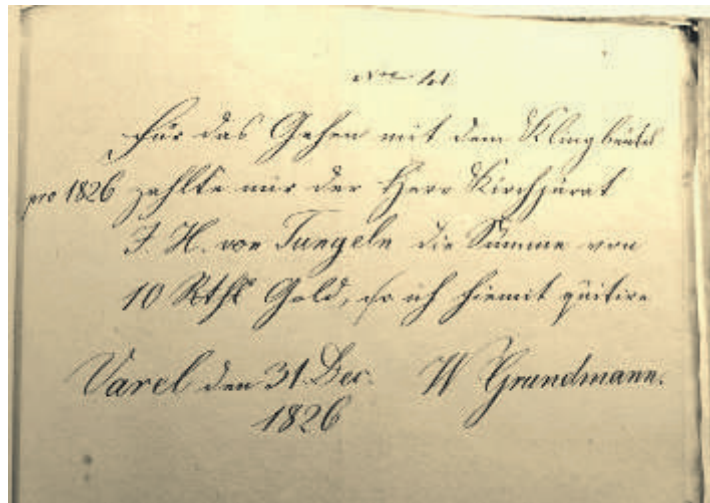 Nro 41
Für das Gehen mit dem Klingbeutel
pro 1826 zahlte mir der Herr Kirchjurat
J. H. von Tungeln die Summe von
10 Rthlr Gold, so ich hiemit quitire
Varel den 31 Dec. W Grundmann.
1826